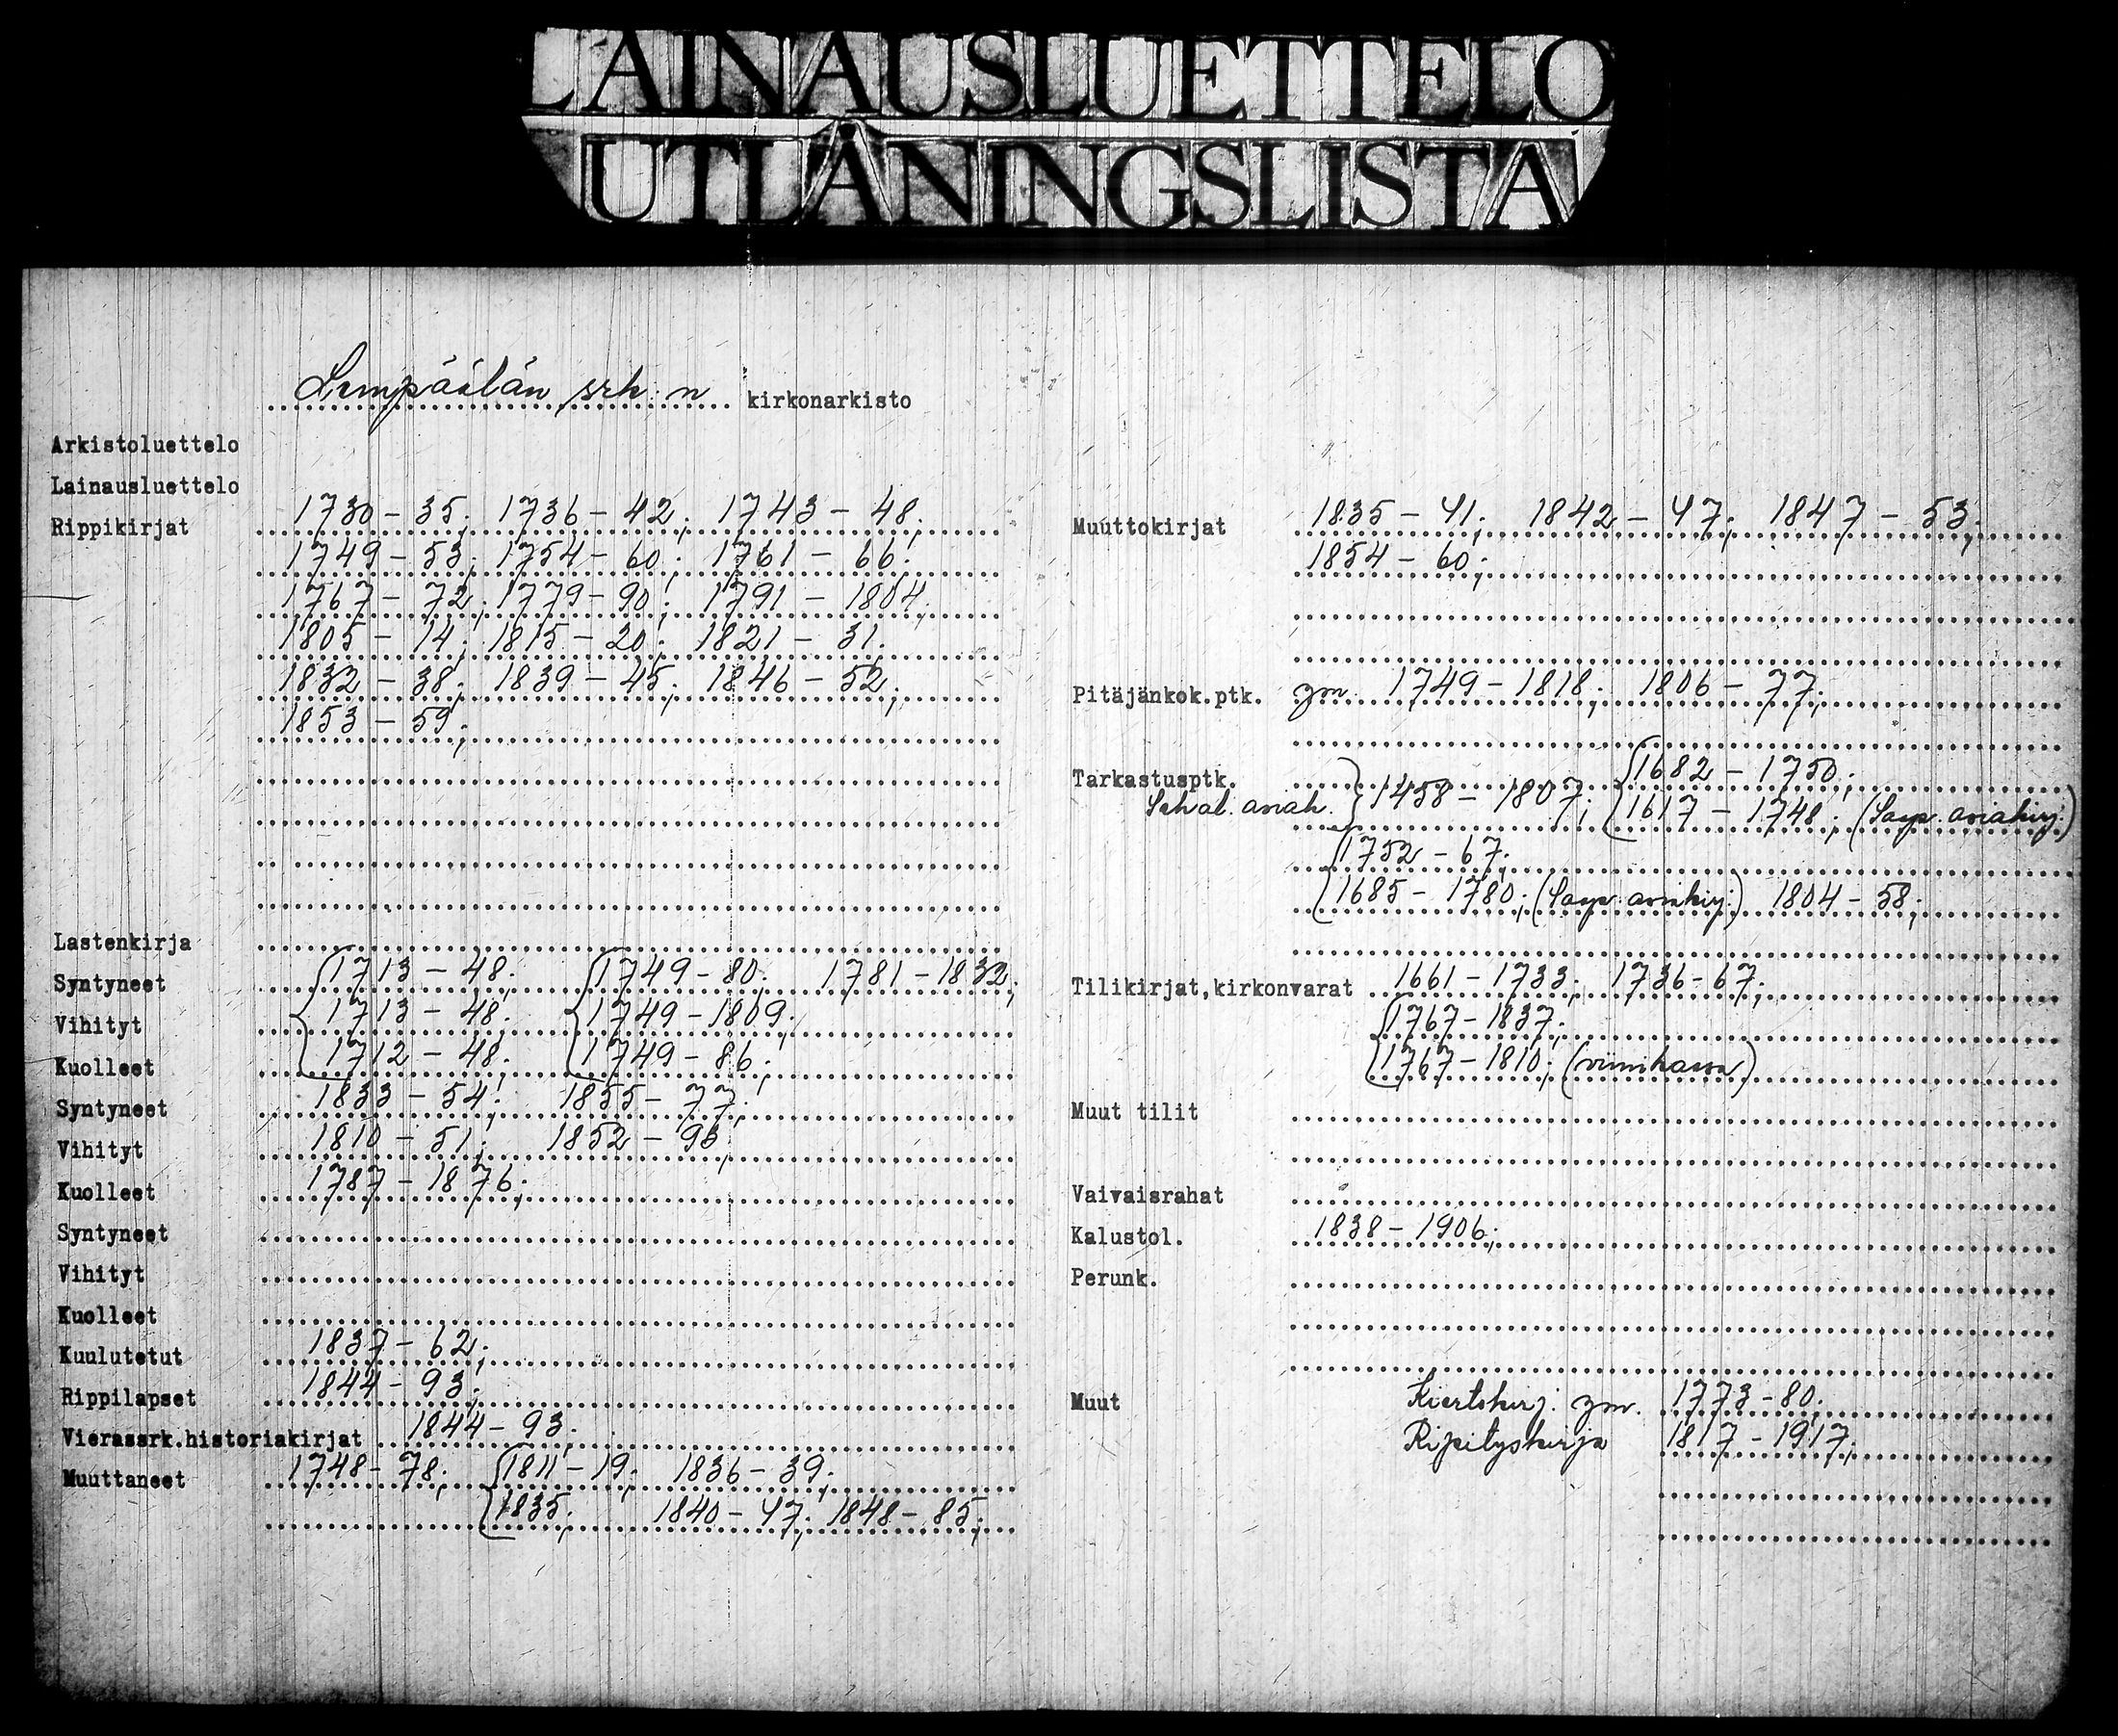 LAINAUSLUETTELO
UTLÅNINGSLISTA
Lempäälän srk:n kirkonarkisto
Arkistoluettelo
Lainausluettelo
Rippikirjat 1730-35; 1736-42; 1743-48;
1749-53; 1754-60; 1761-66;
1767-72; 1779-90; 1791-1804;
1805-14; 1815-20; 1821-31;
1832-38; 1839-45; 1846-52;
1853-59;
Lastenkirja
Syntyneet 1713-48; 1749-80; 1781-1832;
Vihityt 1713-48; 1749-1809;
Kuolleet 1712-48; 1749-86;
Syntyneet 1833-54; 1855-77;
Vihityt 1810-51; 1852-93;
Kuolleet 1787-1876;
Syntyneet
Vihityt
Kuolleet
Kuulutetut 1837-62;
Rippilapset 1844-93;
Vierassrk.historiakirjat 1844-93;
Muuttaneet 1748-78; 1811-19; 1836-39;
1835; 1840-47; 1848-85;
Muuttokirjat 1835-41; 1842-47; 1847-53;
1854-60;
Pitäjänkok.ptk. ym. 1749-1818; 1806-77;
Tarkastusptk. 1682-1750;
Sekal. asiak. 1458-1807; 1617-1748; (Saap. asiakirj.)
1752-67;
1685-1780; (Saap. asiakirj.) 1804-58;
Tilikirjat,kirkonvarat 1661-1733; 1736-67;
1767-1837;
1767-1810; (viinikassa)
Muut tilit
Vaivaisrahat
Kalustol. 1838-1906;
Perunk.
Muut Kiertokirj. ym. 1773-80;
Ripityskirja 1817-1917;